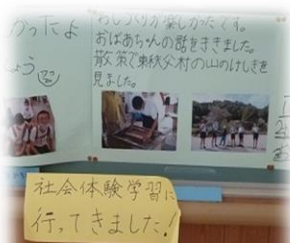 かったよ
しょう
おしづくりが楽しかたです。
おばあちゃんの話をききました。
散策で東秩父村の山のけしきを
見ました。
社会体験学習に
行ってきました！